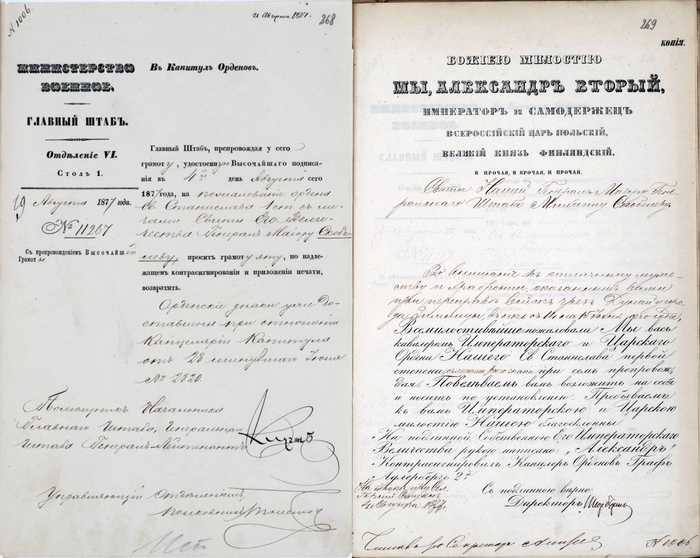 N 1206.
21 Августа 1877.
268
МИНИСТЕРСТВО
ВОЕННОЕ.
ГЛАВНЫЙ ШТАБЪ.
Отдѣленіе VI.
Столъ 1.
19 Августа 1877 года.
№ 11257
Съ препровожденіемъ Высочайшей
Грамоты.
Въ Капитулъ Орденовъ.
Главный Штабъ, препровождая у сего
грамоту, удостоенную Высочайшаго подписанія
въ 4й день Августа
1877 года, на пожалованіе ордена
Св Станислава 1 ст. съ мечами
Свиты Его Величества
Генералъ Маіору Скобелеву,
проситъ грамоту эту, по надлежащемъ
контрасигнированіи и приложеніи печати,
возвратить.
Орденскіе знаки уже доставлены
при отношеніи
Канцеляріи Капитула
отъ 28 минувшаго Іюня
№ 2820.
Помощникъ Начальника
Главнаго Штаба, Генеральнаго
Штаба Генералъ-Лейтенантъ
Управляющій Отдѣленіемъ,
Полковникъ
269
КОПІЯ.
БОЖІЕЮ МИЛОСТІЮ
МЫ, АЛЕКСАНДРЪ ВТОРЫЙ,
ИМПЕРАТОРЪ И САМОДЕРЖЕЦЪ
ВСЕРОССІЙСКІЙ, ЦАРЬ ПОЛЬСКІЙ,
ВЕЛИКІЙ КНЯЗЬ ФИНЛЯНДСКІЙ,
И ПРОЧАЯ, И ПРОЧАЯ, И ПРОЧАЯ.
Свиты Нашей Генералъ-Маіору Генеральнаго
Штаба Михаилу Скобелеву.
Во вниманіе къ отличному мужеству
и храбрости, оказаннымъ вами
при переправѣ войскъ чрезъ Дунай у города
Зимницы, въ ночь съ 14 на 15 Іюня сего года,
Всемилостивѣйше пожаловали Мы васъ
кавалеромъ Императорскаго и Царскаго
Ордена Нашего Св Станислава первой
степени съ мечами, знаки коего при семъ препровождая
Повелѣваемъ вамъ возложить на себя
и носить по установленію. Пребываемъ
къ вамъ Императорскою и Царскою
милостію Нашею благосклонны.
На подлинной Собственною Его Императорскаго
Величества рукою написано: „Александръ"
Контрасигнировалъ Канцлеръ Орденовъ Графъ
Адлербергъ 2й
4 Августа 1877
Съ подлиннымъ вѣрно:
Директоръ
N 1206